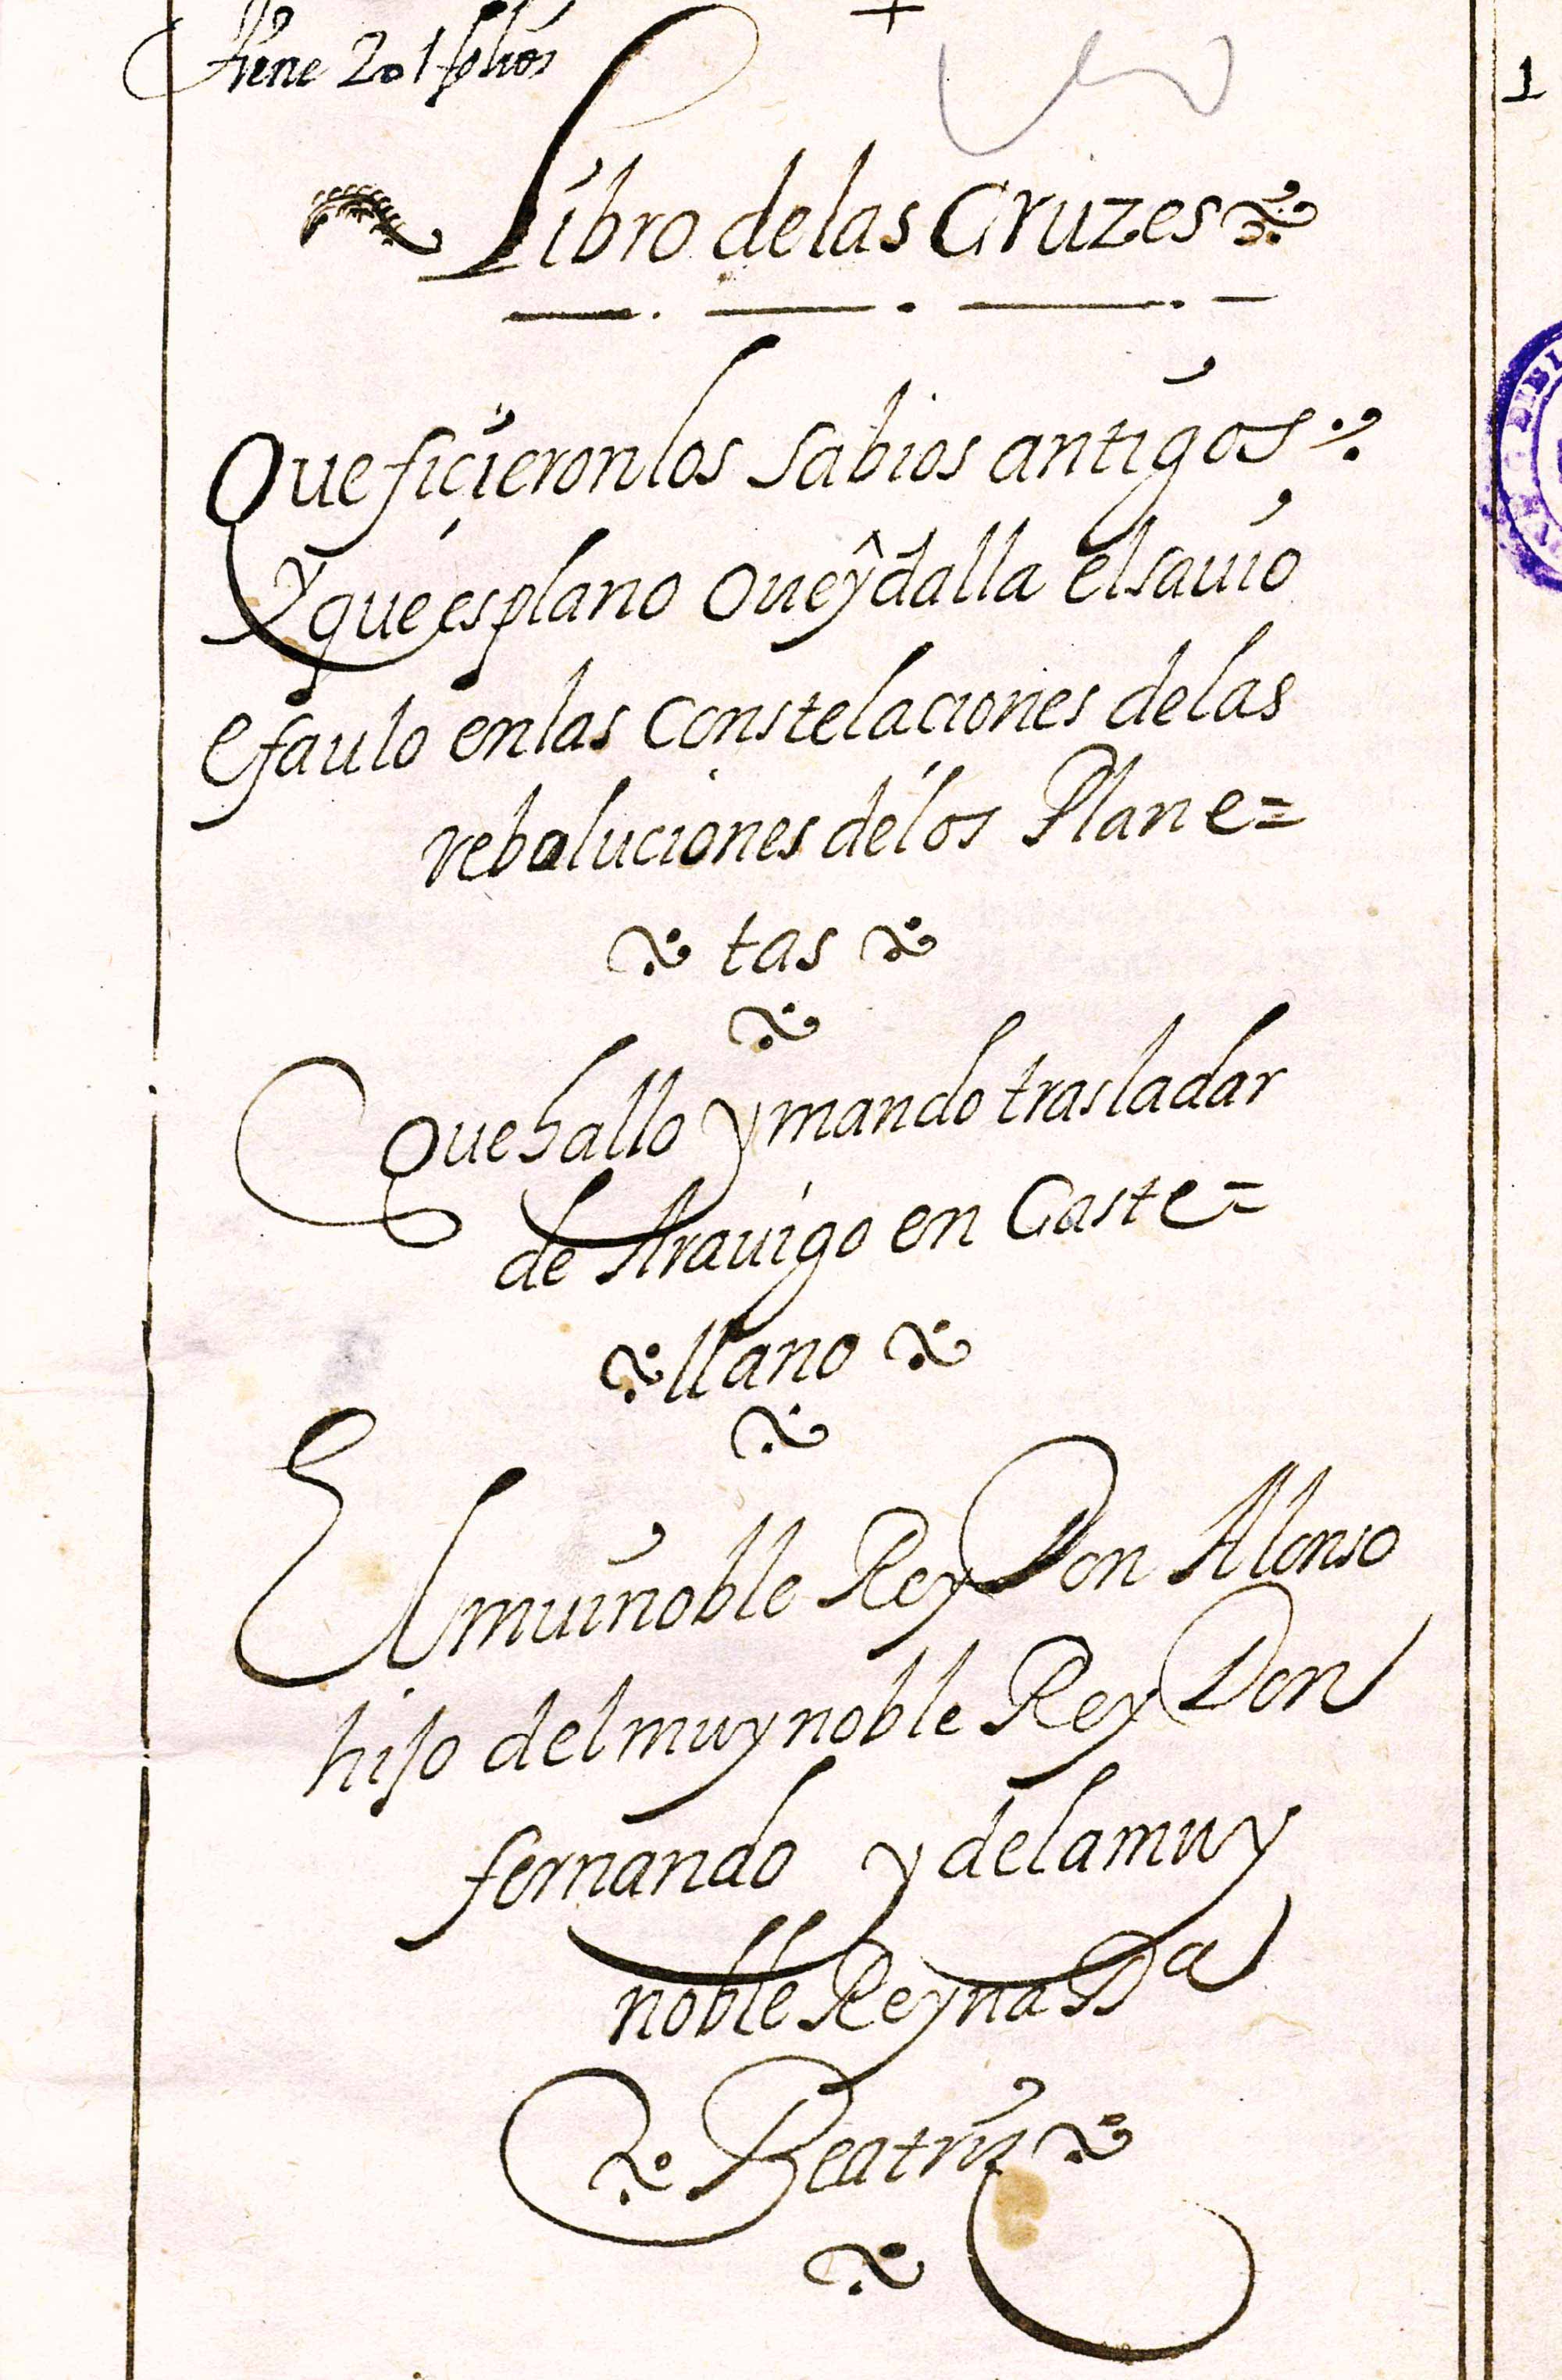 Tiene 201 folios
+
1
Libro de las Cruzes
Que ficieron los sabios antigos
Y que esplano oueydalla el sauio
e faulo en las Constelaciones de las
reboluciones de los Plane=
tas
Que hallo y mando trasladar
de Arauigo en Caste=
llano
El mui noble Rey Don Alonso
hijo del muy noble Rey Don
fernando y de la muy
noble Reyna Dª
Beatriz